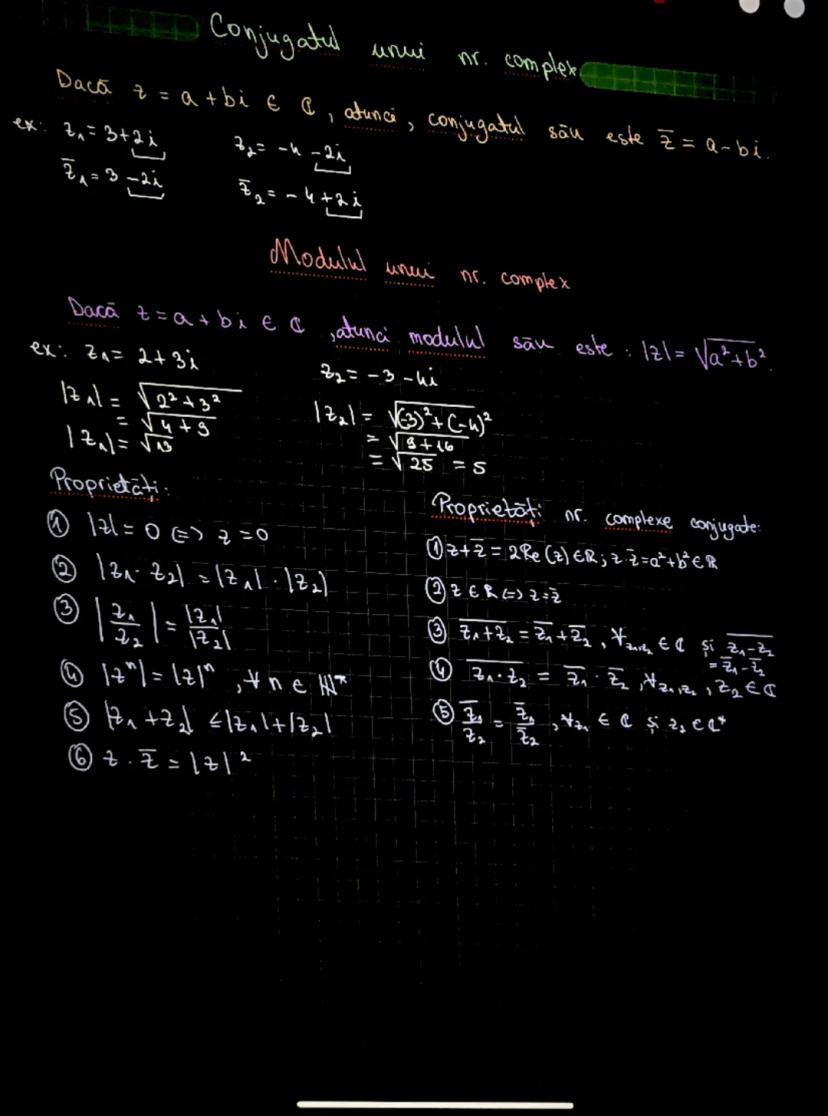 Conjugatul unui nr. complex
Dacă z = a + bi ∈ ℂ, atunci, conjugatul său este z̅ = a - bi.
ex: z₁ = 3+2i    z₂ = -4 -2i
z̅₁ = 3 -2i    z̅₂ = -4 +2i
Modulul unui nr. complex
Dacă z = a + bi ∈ ℂ, atunci modulul său este: |z| = √(a²+b²).
ex: z₁ = 2+3i
|z₁| = √(2²+3²)
= √(4+9)
|z₁| = √13
z₂ = -3 -4i
|z₂| = √((-3)²+(-4)²)
= √(9+16)
= √25 = 5
Proprietăți:
① |z| = 0 (=) z = 0
② |z₁ · z₂| = |z₁| · |z₂|
③ |z₁/z₂| = |z₁|/|z₂|
④ |zⁿ| = |z|ⁿ, ∀ n ∈ ℕ*
⑤ |z₁ + z₂| ≤ |z₁| + |z₂|
⑥ z · z̅ = |z|²
Proprietăți nr. complexe conjugate:
① z + z̅ = 2Re(z) ∈ ℝ; z · z̅ = a² + b² ∈ ℝ
② z ∈ ℝ (=) z = z̅
③ \overline{z₁+z₂} = z̅₁ + z̅₂, ∀ z₁,z₂ ∈ ℂ și \overline{z₁-z₂}
= z̅₁ - z̅₂
④ \overline{z₁ · z₂} = z̅₁ · z̅₂, ∀ z₁,z₂, z₂ ∈ ℂ
⑤ \overline{z₁}/\overline{z₂} = z̅₁/z̅₂, ∀ z₁ ∈ ℂ și z₂ ∈ ℂ*